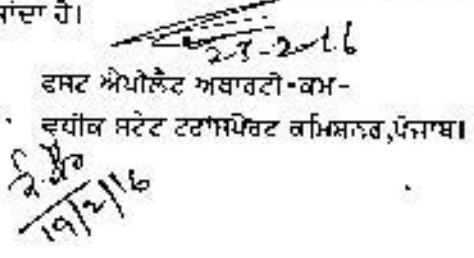 ਜਾਂਦਾ ਹੈ।
23-2-16
ਫਸਟ ਐਪੀਲੈਟ ਅਥਾਰਟੀ-ਕਮ-
ਵਧੀਕ ਸਟੇਟ ਟਰਾਂਸਪੋਰਟ ਕਮਿਸ਼ਨਰ,ਪੰਜਾਬ।
19/2/16